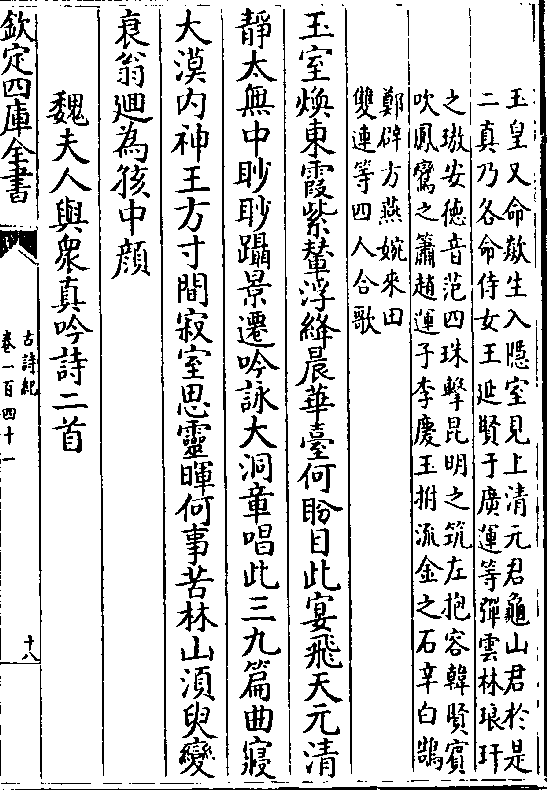 玉皇又命欻生入隱室見上清元君龜山君於是
二真乃各命侍女王延賢于廣運等彈雲林琅玕
之璈安德音范四珠擊昆明之筑左抱容韓賢賓
吹鳳鸞之簫趙運子李慶玉拊流金之石辛白鵠
鄭辟方燕婉來田
雙連等四人合歌
玉室煥東霞紫輦浮絳晨華臺何盼目此宴飛天元清
靜太無中眇眇躡景遷吟詠大洞章唱此三九篇曲寢
大漠内神王方寸間寂室思靈暉何事苦林山須臾變
衰翁廻為孩中顔
魏夫人與衆真吟詩二首
欽定四庫全書
古詩紀
卷一百四十一
十八